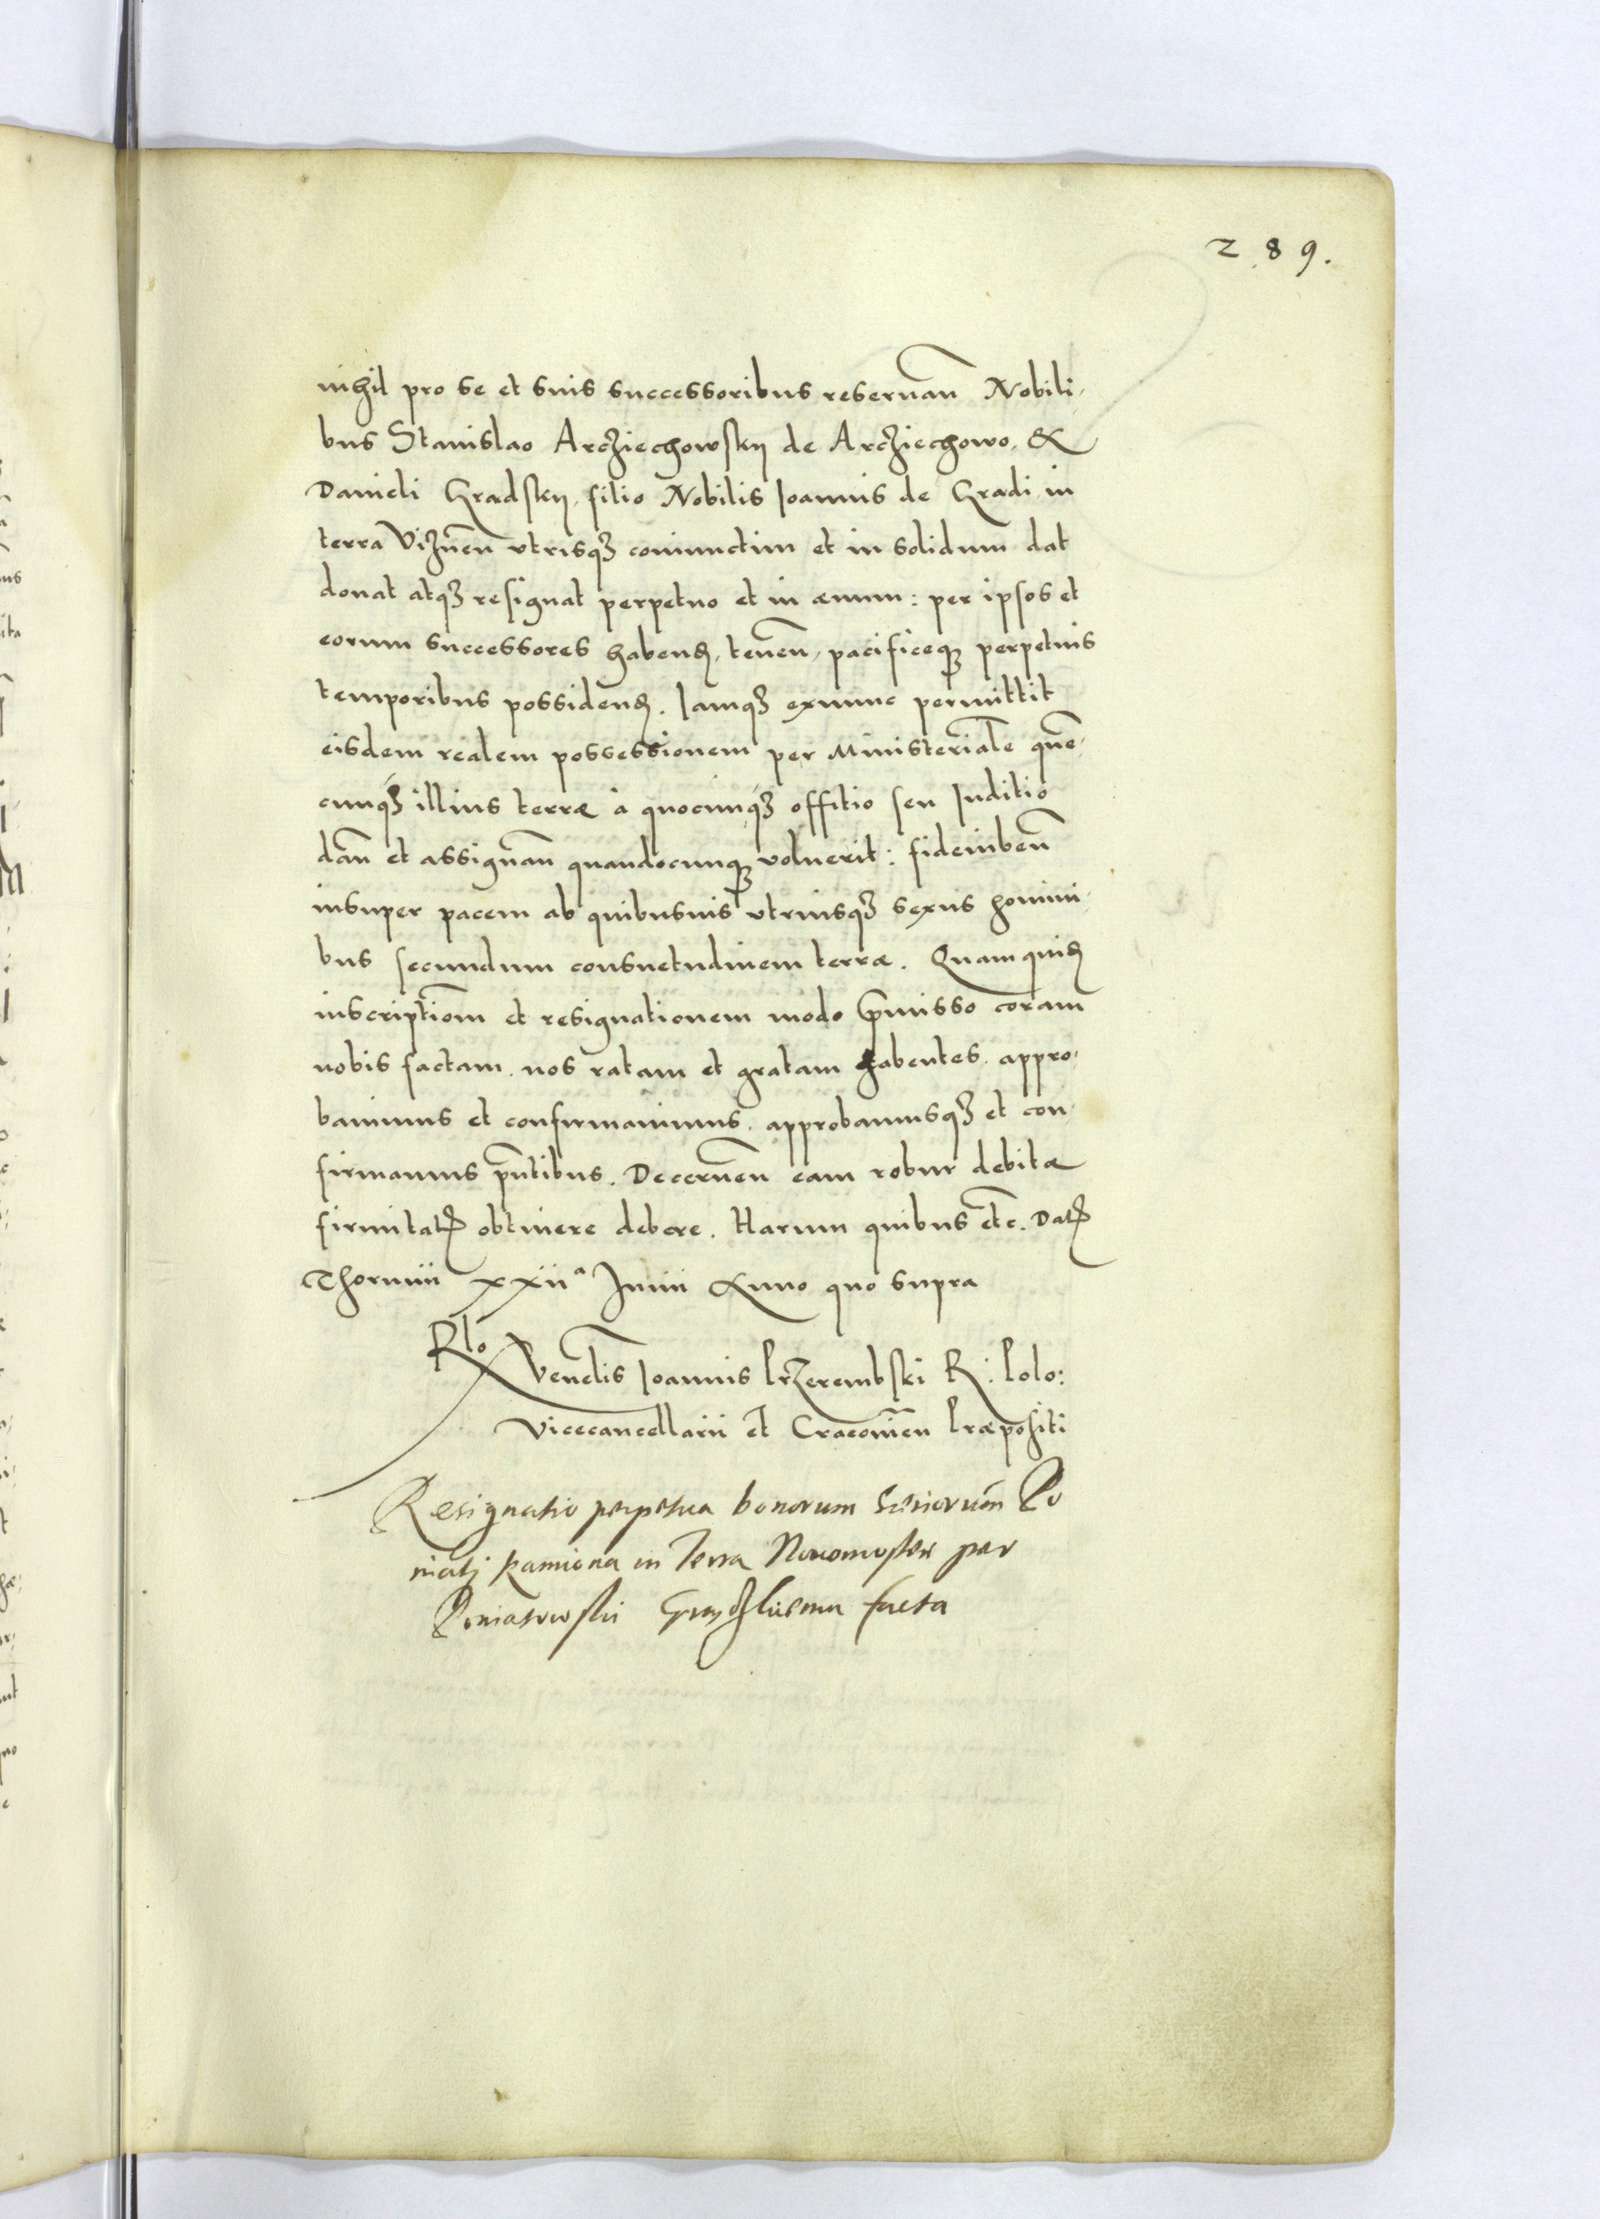 2 8 9.
nihil pro se et suis successoribus reseruan̄ Nobili-
bus Stanislao Arcziechowskij de Arcziechowo, &
Danieli Gradskij, filio Nobilis Ioannis de Gradi in
terra Viznen̄ vtrisqꝫ coniunctim et in solidum dat
donat atqꝫ resignat perpetuo et in æuum: per ipsos et
eorum successores habenđ, tenen̄, pacificeqꝫ perpetuis
temporibus possidenđ. Iamqꝫ exnunc permittit
eisdem realem possessionem per Ministerialē quē-
cunqꝫ illius terræ à quocunqꝫ offitio seu Iuditio
dan̄ et assignan̄ quandocunqꝫ voluerit: fideiuben̄
insuper pacem ab quibusuis vtriusqꝫ sexus homini-
bus secundum consuetudinem terræ. Quamquiđ
inscriptiom̄ et resignationem modo p̄misso coram
nobis factam, nos ratam et gratam habentes, appro-
bauimus et confirmauimus, approbamusqꝫ et con-
firmamus pn̄tibus. Decernen̄ eam robur debitæ
firmitatꝭ obtinere debere. Harum quibus etc̄. Datꝭ
Thorunii xxiiª Junii Anno quo supra
Rlo Venel̄is Ioannis Przerembski R. Polo:
Vicecancellarii et Cracouien̄ Præpositi
Resignatio perpetua bonorum
in Terra per
facta